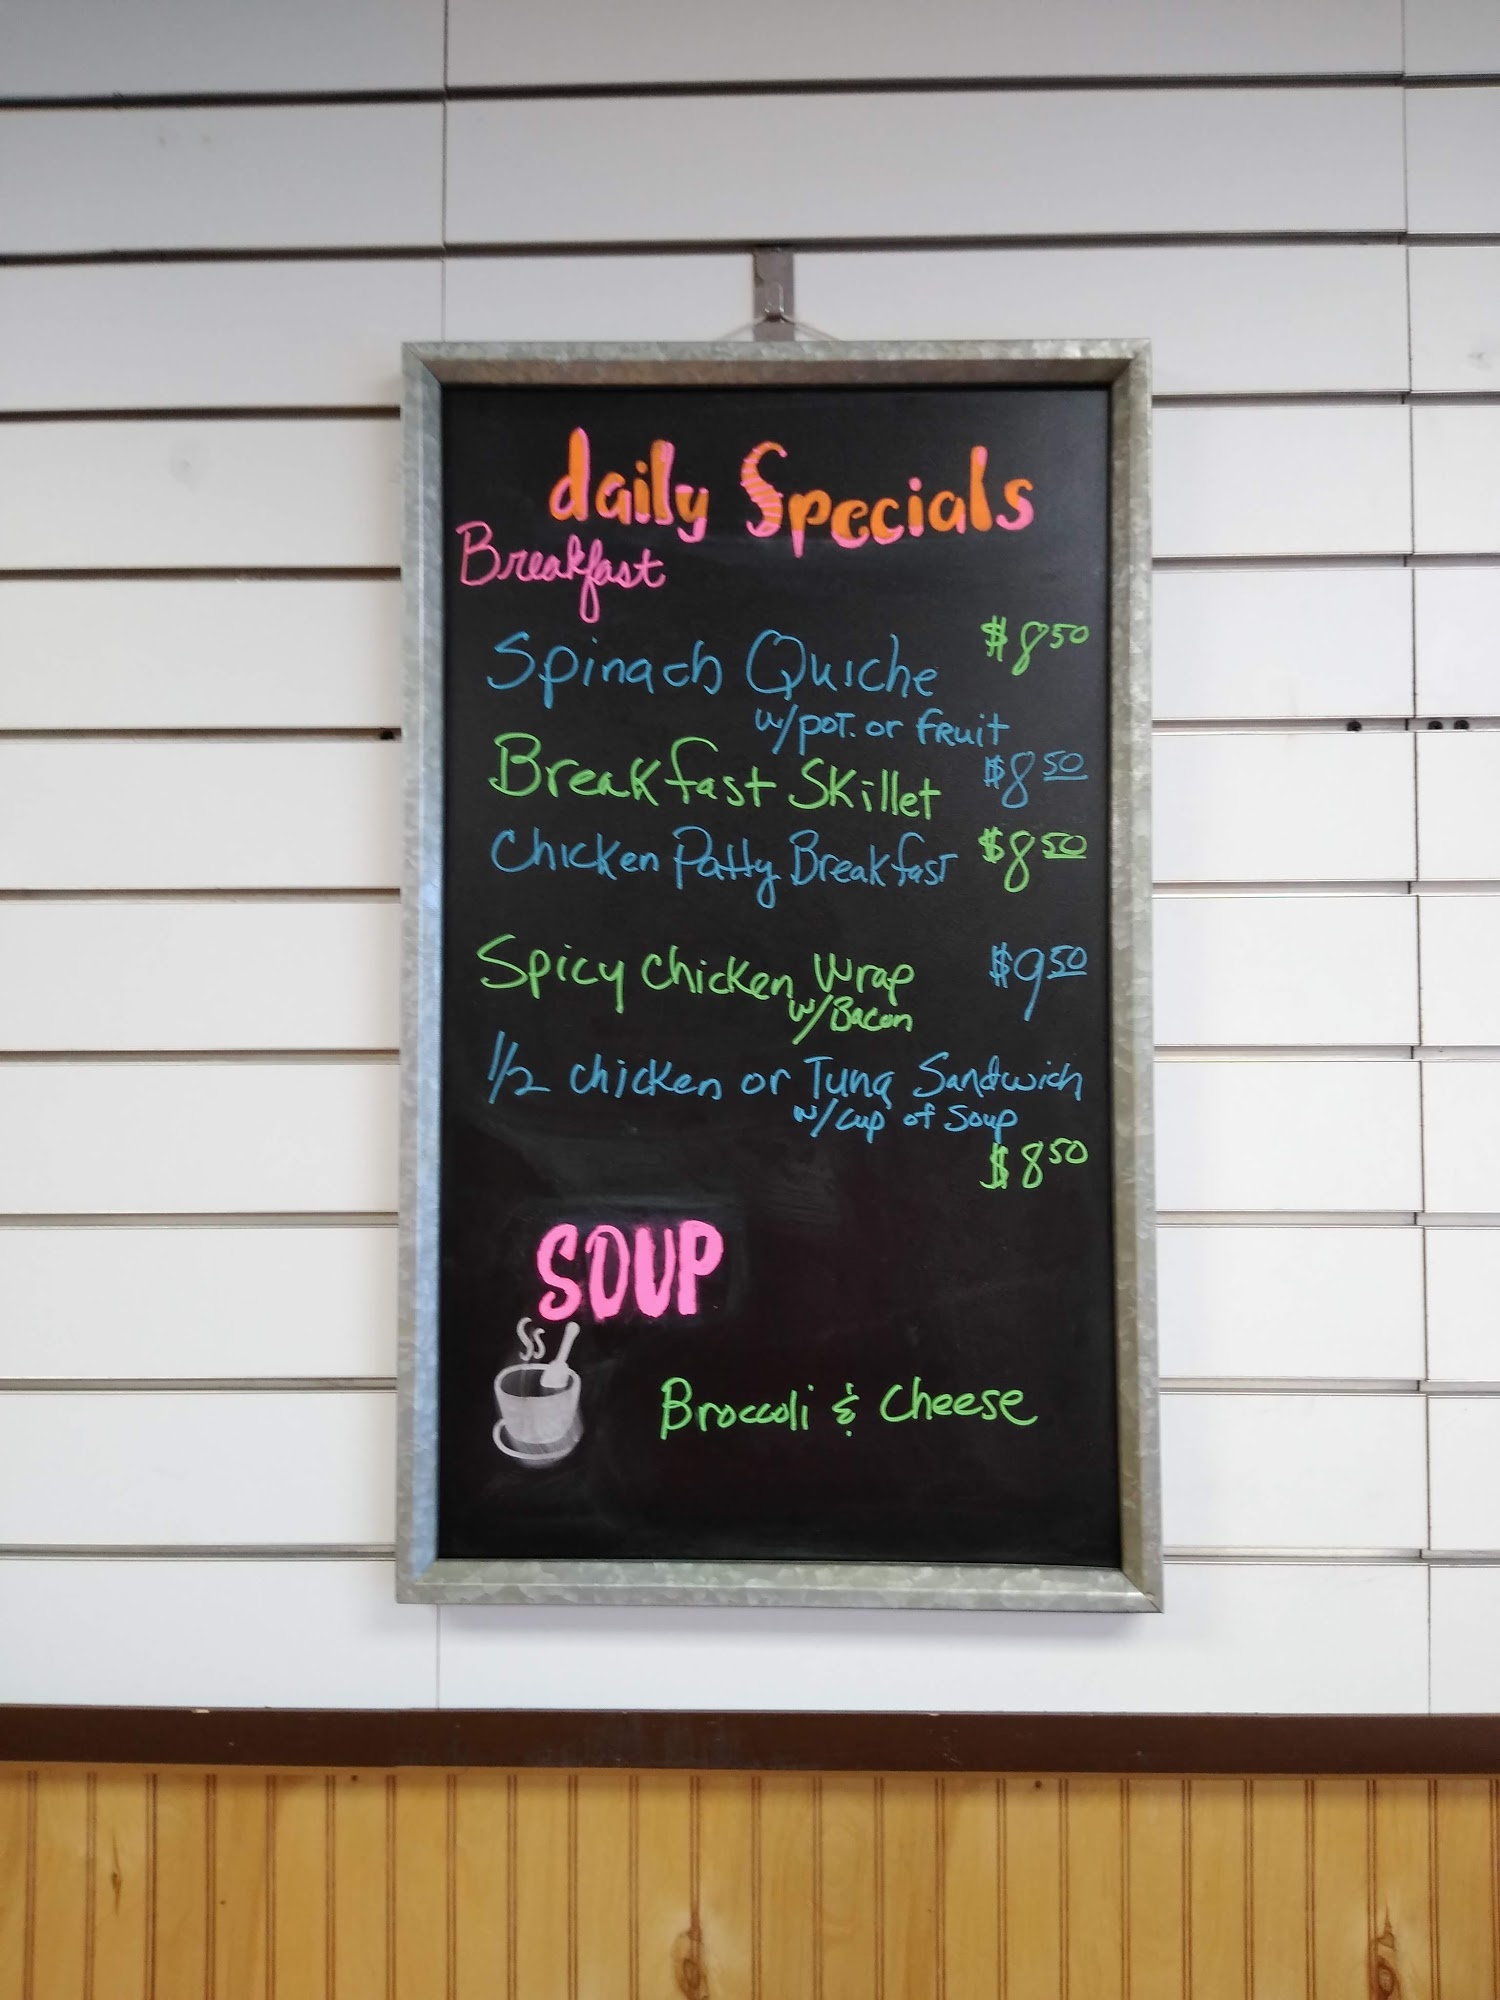 daily Specials
Breakfast
Spinach Quiche $8.50
w/pot. or fruit
Breakfast Skillet $8.50
Chicken Patty Breakfast $8.50
Spicy Chicken Wrap $9.50
w/Bacon
1/2 chicken or Tuna Sandwich
w/cup of Soup
$8.50
SOUP
Broccoli & Cheese